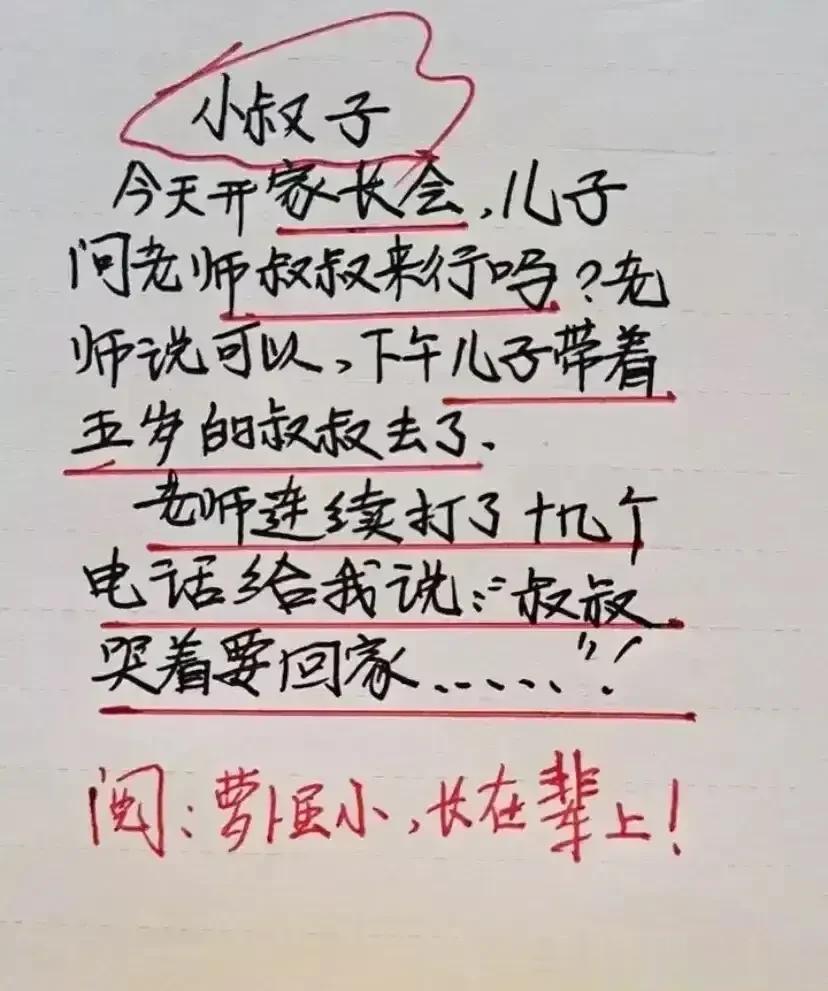 小叔子
今天开家长会,儿子
问老师叔叔来行吗?老
师说可以,下午儿子带着
五岁的叔叔去了.
老师连续打了十几个
电话给我说:“叔叔
哭着要回家......”!
阅:萝卜虽小,长在辈上!